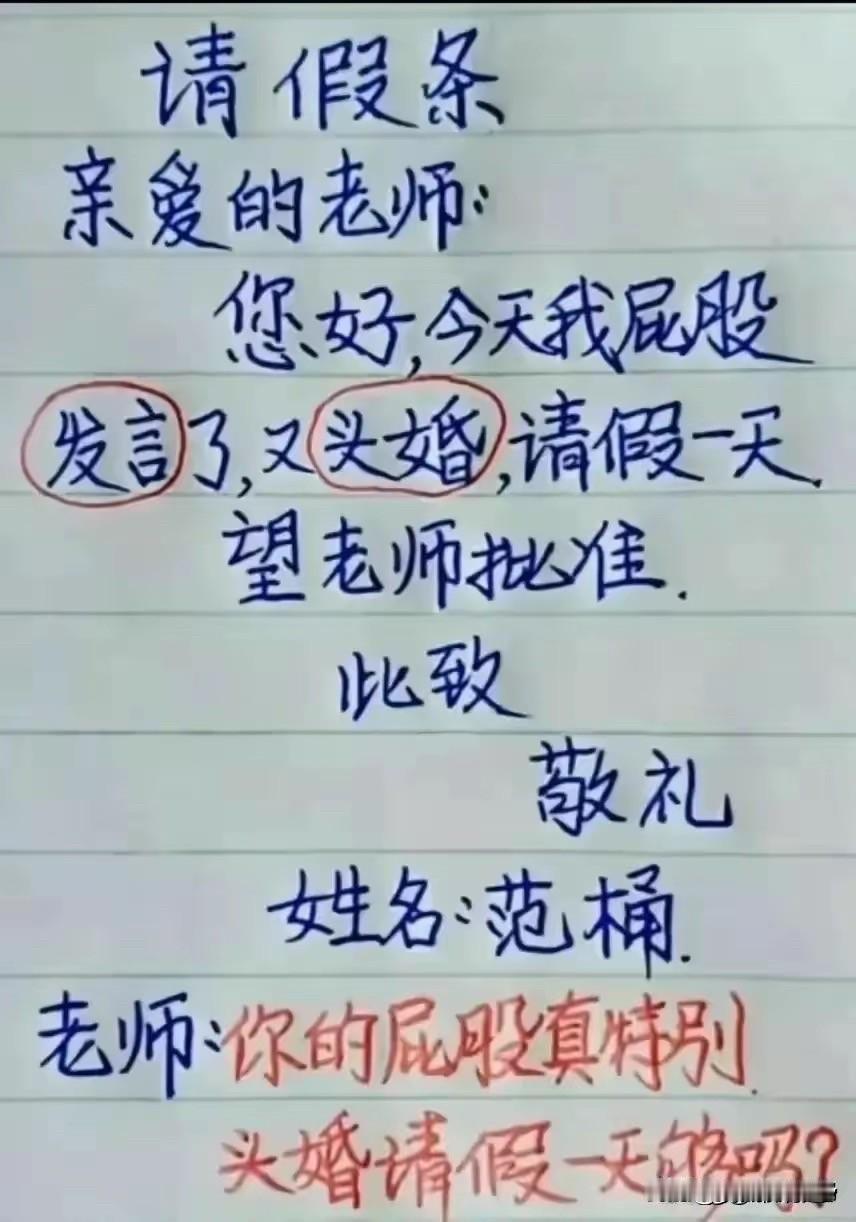 请假条
亲爱的老师:
您好,今天我屁股
发言了,又头婚,请假一天.
望老师批准.
此致
敬礼
姓名:范桶.
老师:你的屁股真特别.
头婚请假一天够吗?